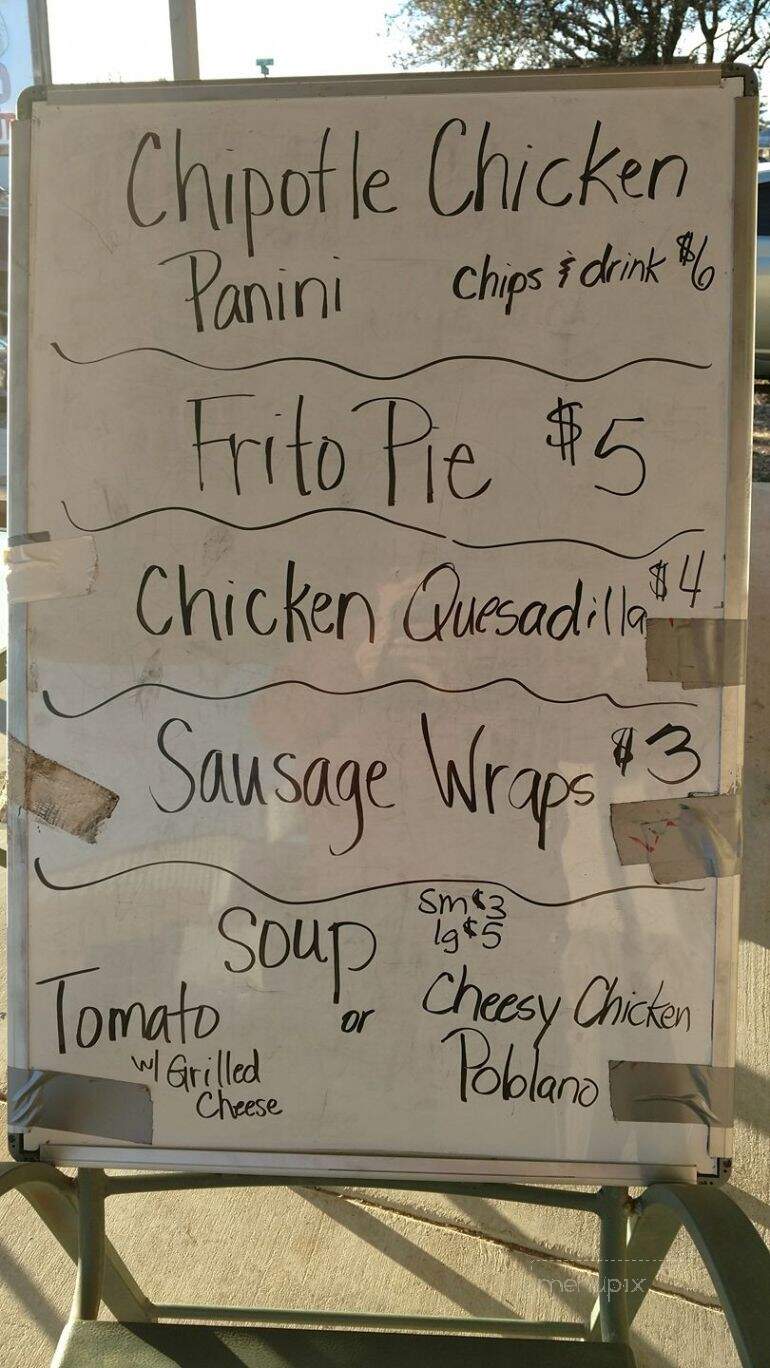 Chipotle Chicken
Panini chips & drink $6
Frito Pie $5
Chicken Quesadilla $4
Sausage Wraps $3
Soup sm $3
lg $5
Tomato or Cheesy Chicken
w/ Grilled Poblano
Cheese
menupix